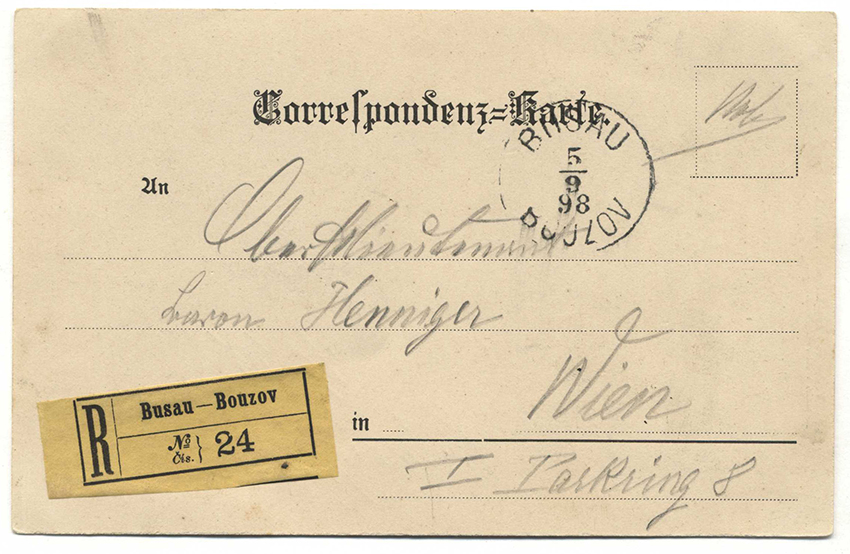 Correspondenz=Karte.
BUSAU
5
9
98
BOUZOV
An
Oberstlieutenant
Baron Henniger
Wien
in
I Parkring 8
R
Busau — Bouzov
No
čís.} 24